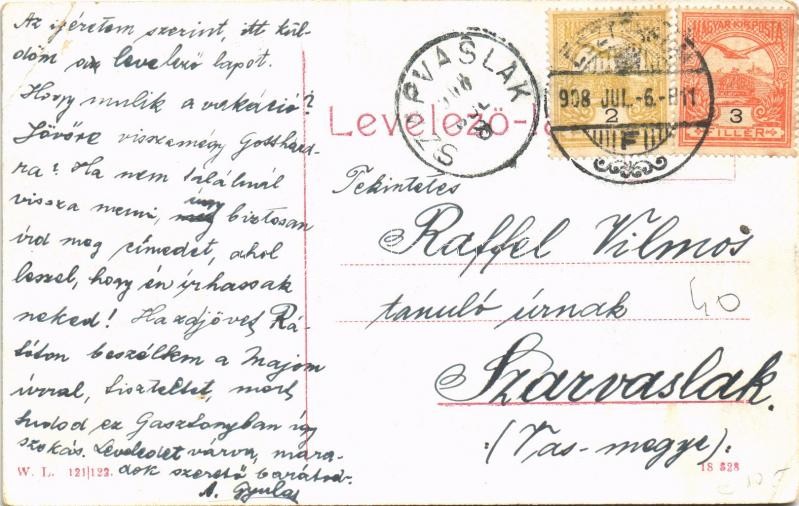 Az igéretem szerint, itt kül-
döm az levelező lapot.
Hogy mulik a vakáció?
Jövőre visszamégy Gotthard-
ra? Ha nem találnál
vissza menni, úgy biztosan
ird meg címedet, ahol
leszel, hogy én írhassak
neked! Hazajövet, Rá-
tóton beszéltem a Majom
úrral, tiszteltet, mert
tudod ez Gasztonyban így
szokás. Leveledet várva, mara-
dok szerető barátod.
A. Gyula
W. L. 121/122.
Levelező-
SZARVASLAK
908 JUL.-6.-8 11
F
2
MAGYAR KIR. POSTA
3
FILLÉR
Tekintetes
Raffel Vilmos
tanuló úrnak
40
Szarvaslak.
(Vas-megye).
18 328